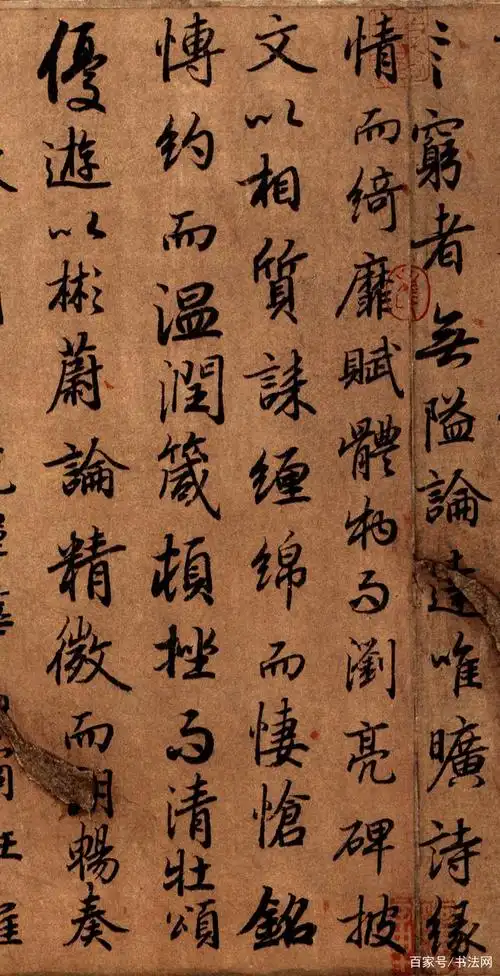 窮者無隘論達唯曠詩緣
情而綺靡賦體物而瀏亮碑披
文以相質誄纏綿而悽愴銘
愽約而温潤箴頓挫而清壯頌
優遊以彬蔚論精微而朗暢奏
百家号/书法网